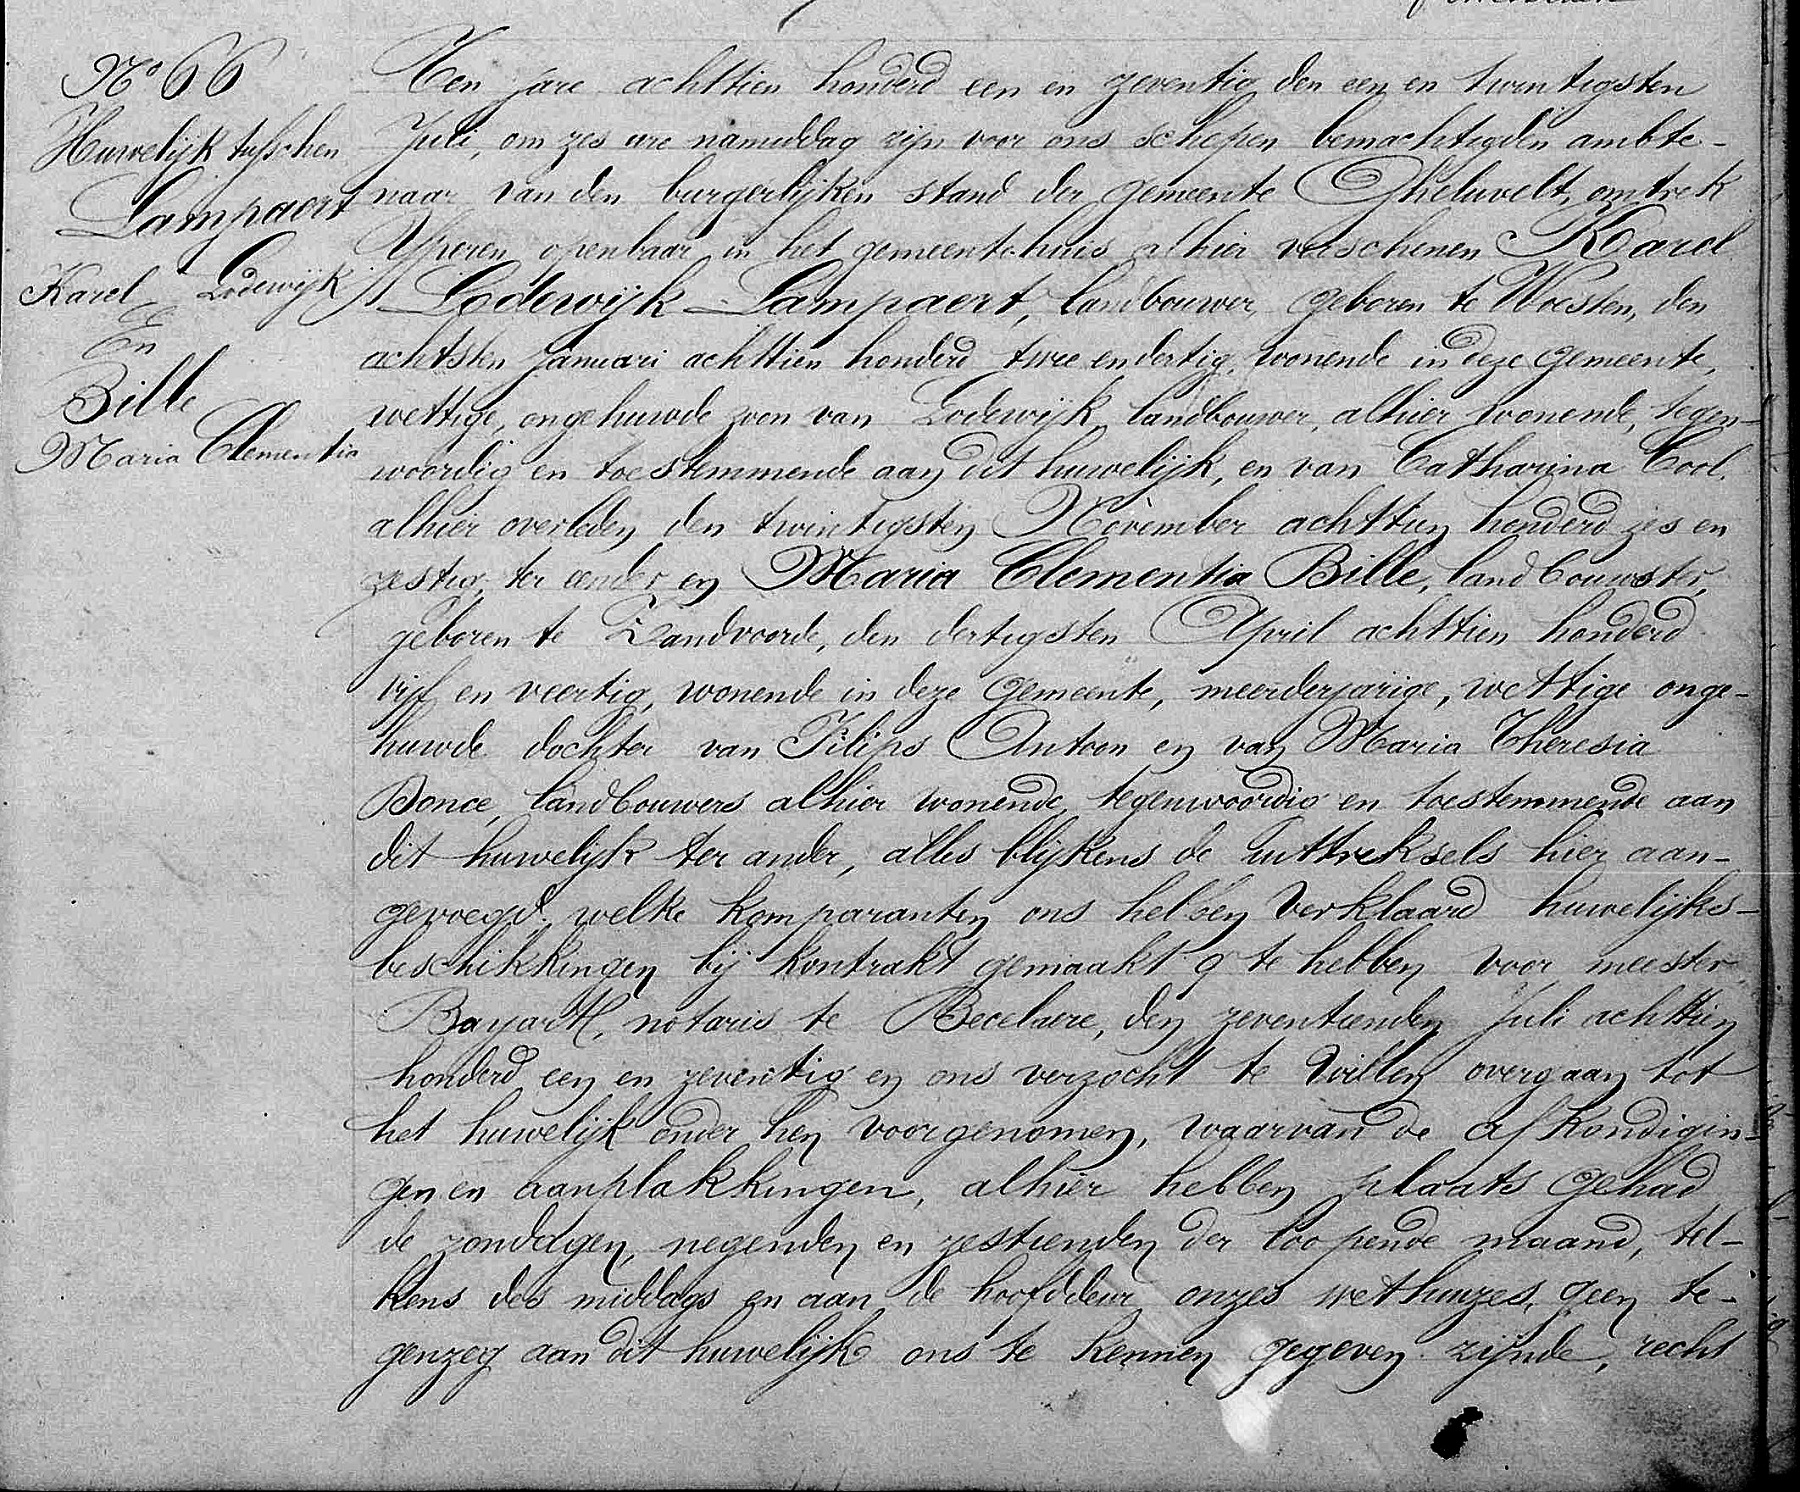 No 66
Huwelijk tusschen
Lampaert
Karel Lodewijk
En
Bille
Maria Clementia
Ten jare achttien honderd een en zeventig den een en twintigsten
Juli, om zes ure namiddag zijn voor ons schepen bemachtigden ambte-
naar van den burgerlijken stand der gemeente Gheluvelt, omtrek
Yperen openbaar in het gemeentehuis alhier verschenen Karel
Lodewijk Lampaert, landbouwer, geboren te Woesten, den
achtsten januari achttien honderd twee en dertig, wonende in deze gemeente,
wettige, ongehuwde zoon van Lodewijk landbouwer, alhier wonende, tegen-
woordig en toestemmende aan dit huwelijk, en van Catharina Cool,
alhier overleden den twintigsten November achttien honderd zes en
zestig, ter eender en Maria Clementia Bille, landbouwster,
geboren te Zandvoorde, den dertigsten April achttien honderd
vijf en veertig, wonende in deze gemeente, meerderjarige, wettige onge-
huwde dochter van Filips Antoon en van Maria Theresia
Bonce, landbouwers alhier wonende, tegenwoordig en toestemmende aan
dit huwelijk ter ander, alles blijkens de uittreksels hier aan-
gevoegd. welke komparanten ons hebben verklaard huwelijks-
beschikkingen bij kontrakt gemaakt te hebben voor meester
Bayart, notaris te Becelaere, den zeventienden Juli achttien
honderd een en zeventig en ons verzocht te willen overgaan tot
het huwelijk onder hen voorgenomen, waarvan de afkondigin-
gen en aanplakkingen, alhier hebben plaats gehad
de zondagen, negenden en zestienden der loopende maand, tel-
kens des middags en aan de hoofddeur onzes wethuizes, geen te-
genzeg aan dit huwelijk ons te kennen gegeven zijnde, recht